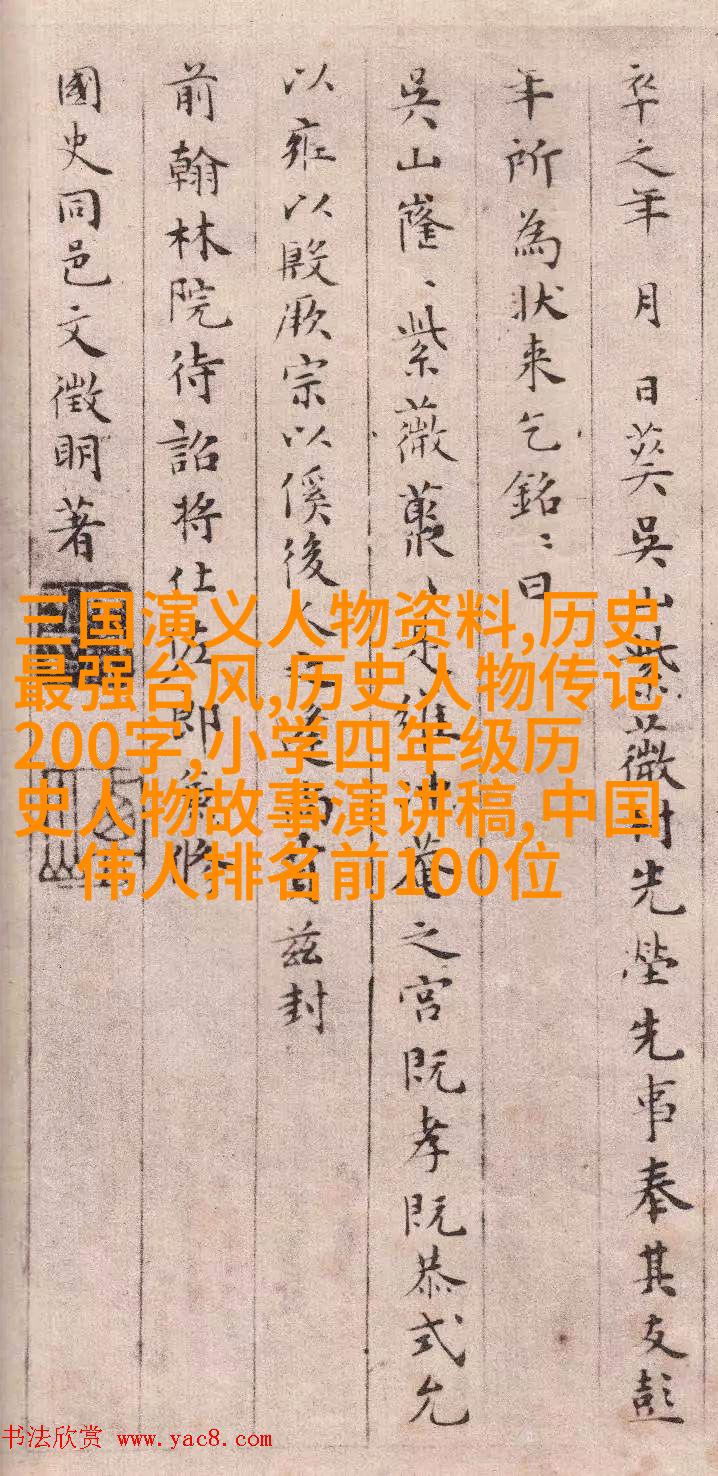 卒之年 月 日葬吳山紫薇村先塋先事奉其友彭
年所為狀来乞銘〻曰
吳山窿〻紫薇藂〻是維沈菴之宮既孝既恭式允
以雍以殷厥宗以傒後人茲封
前翰林院待詔將仕佐郎兼修
國史同邑文徵明著
三国演义人物资料,历史
最强台风,历史人物传记
200字,小学四年级历
史人物故事演讲稿,中国
伟人排名前100位
书法欣赏 www.yac8.com